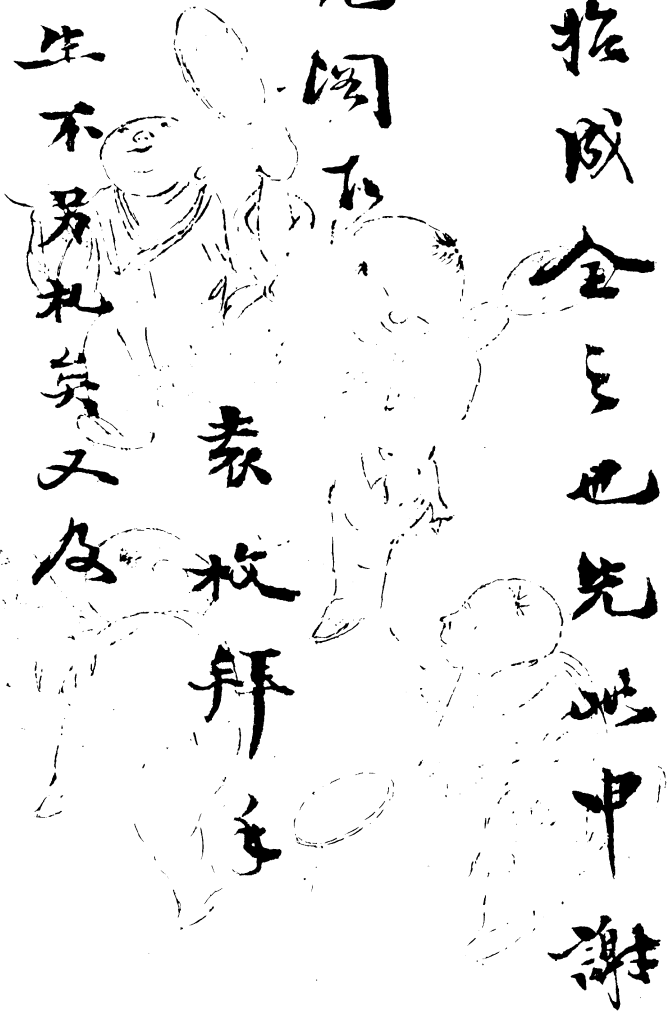 成全之也先此申謝
閣
袁枚拜手
生不另札矣又及